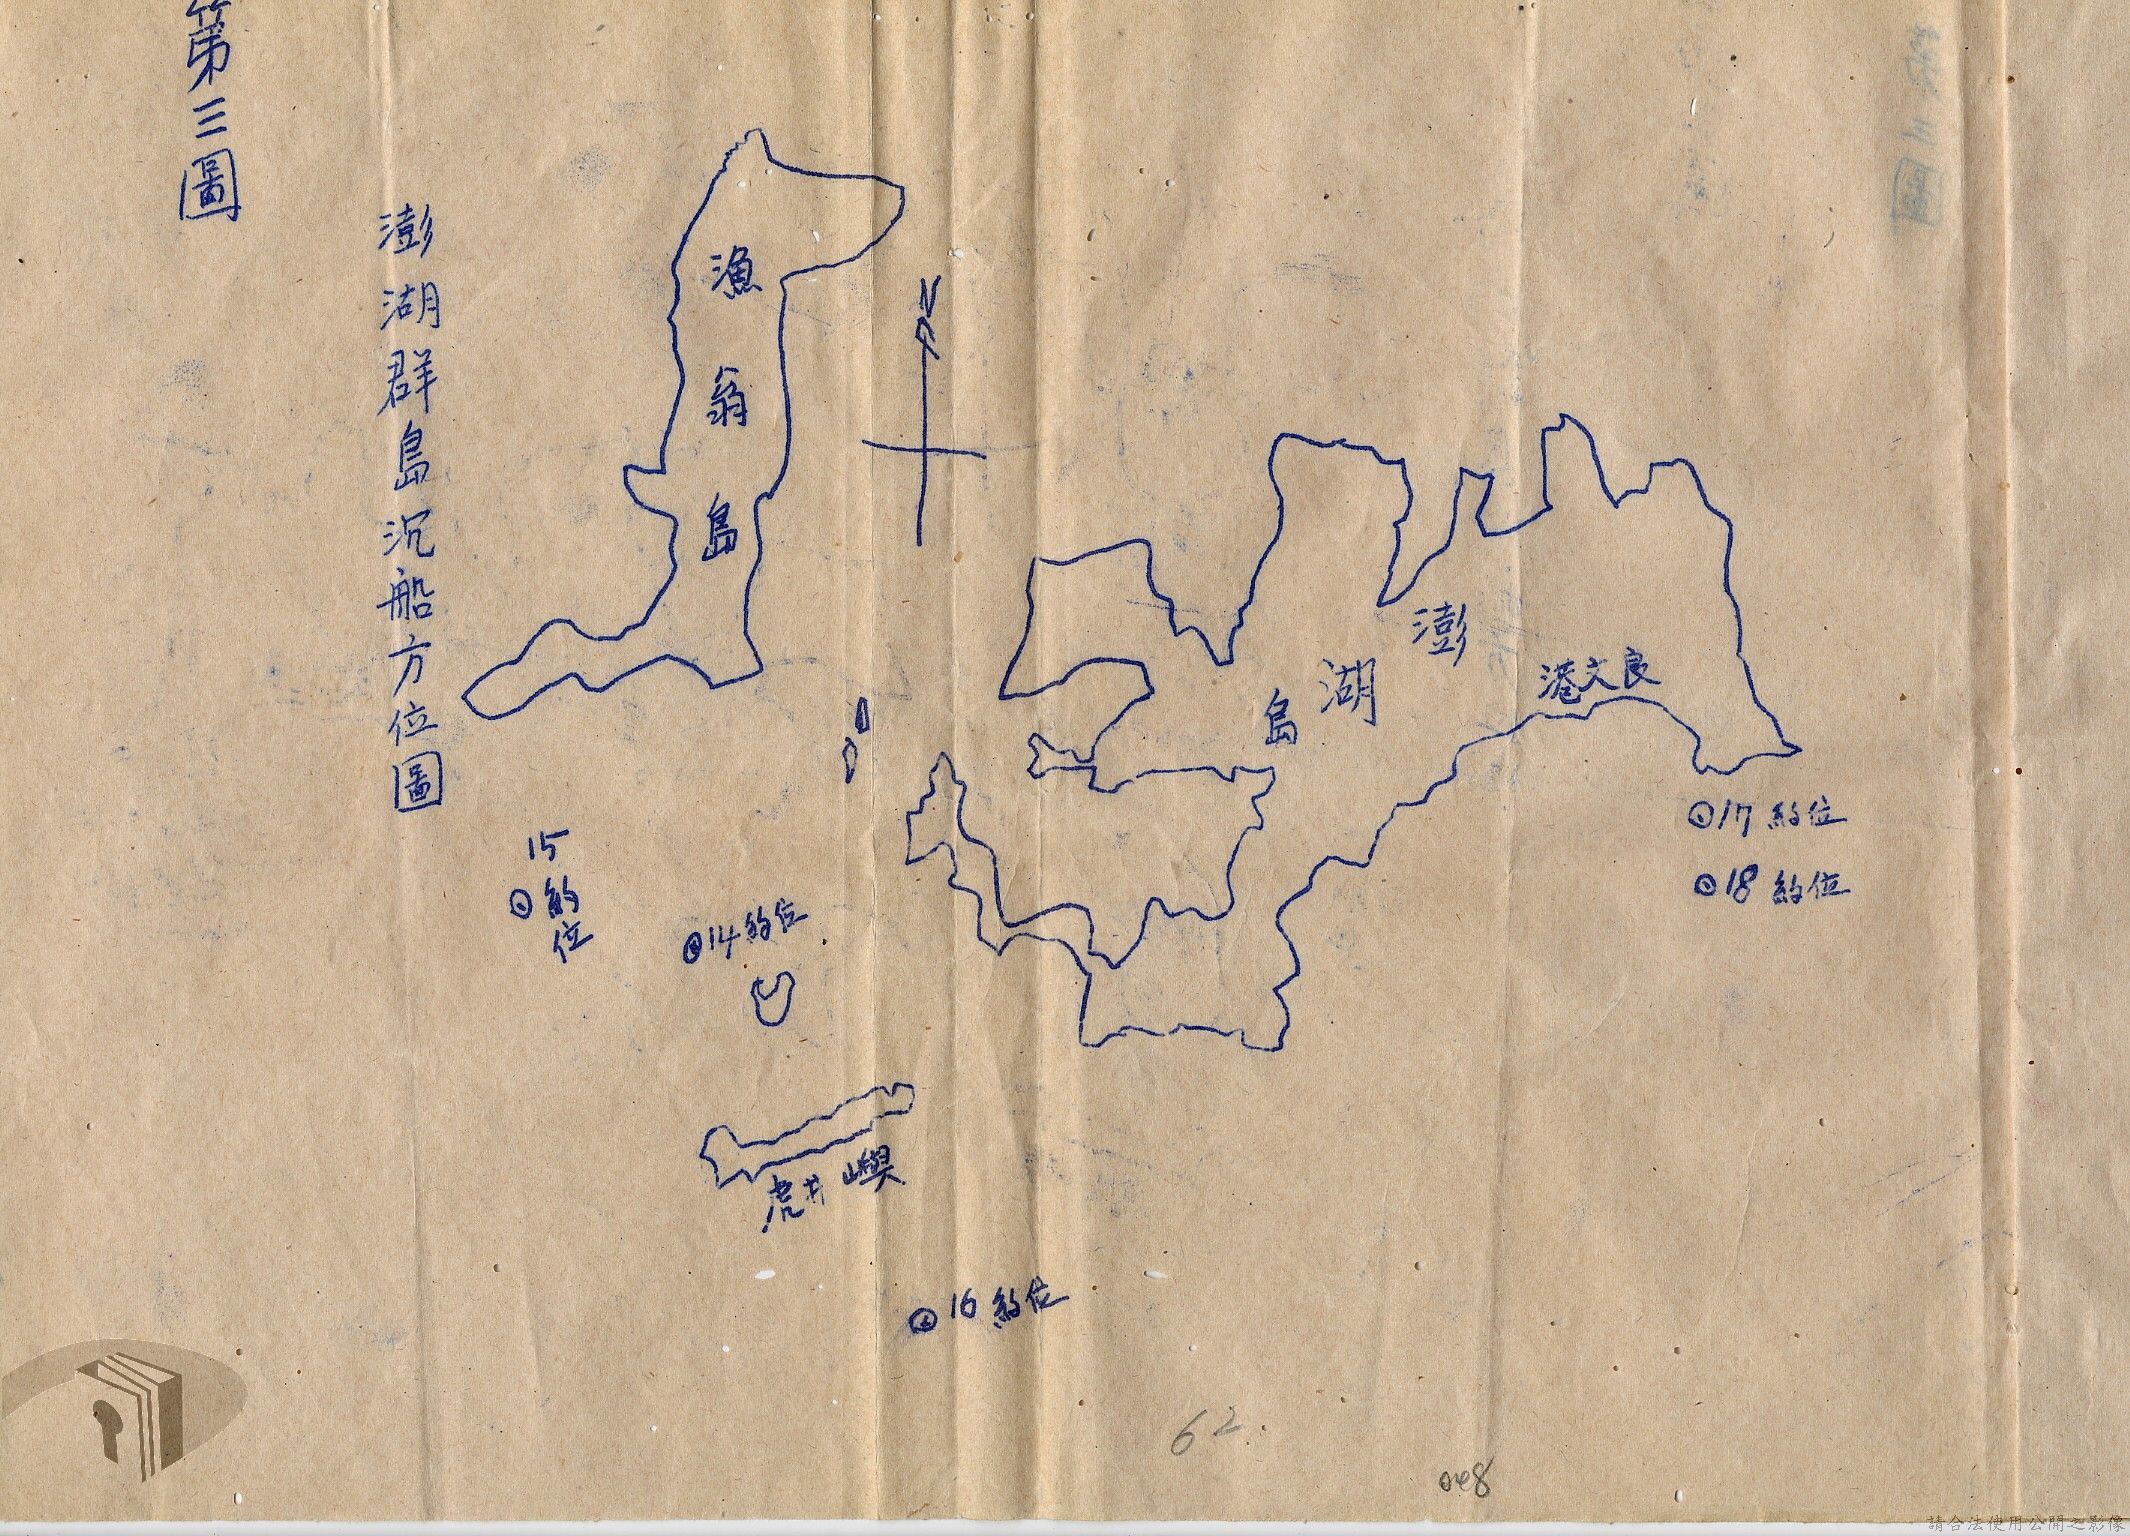 第三圖
澎湖群島沉船方位圖
漁翁島
N
澎湖島
港文良
15約位
14約位
17約位
18約位
虎井嶼
16約位
62
請合法使用公開之影像